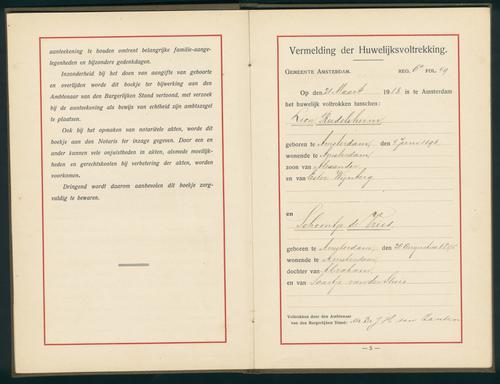 aanteekening te houden omtrent belangrijke familie-aange-
legenheden en bijzondere gedenkdagen.
Inzonderheid bij het doen van aangifte van geboorte
en overlijden wordt dit boekje ter bijwerking aan den
Ambtenaar van den Burgerlijken Stand vertoond, met verzoek
bij de aanteekening als bewijs van echtheid zijn ambtszegel
te plaatsen.
Ook bij het opmaken van notariëele akten, worde dit
boekje aan den Notaris ter inzage gegeven. Door een en
ander kunnen vele onjuistheden in akten, alsmede moeilijk-
heden en gerechtskosten bij verbetering der akten, worden
voorkomen.
Dringend wordt daarom aanbevolen dit boekje zorg-
vuldig te bewaren.
Vermelding der Huwelijksvoltrekking.
GEMEENTE AMSTERDAM. REG. 6a FOL. 19
Op den 21 Maart 1918 is te Amsterdam
het huwelijk voltrokken tusschen:
Leon Rudelsheim
geboren te Amsterdam, den 9 Juni 1896
wonende te Amsterdam
zoon van
en van Ester Wijnberg
en
Schoontje de Vries
geboren te Amsterdam, den 26 Augustus
wonende te Amsterdam
dochter van Abraham
en van Saartje van der Sluis
Voltrokken door den Ambtenaar
van den Burgerlijken Stand:
— 5 —